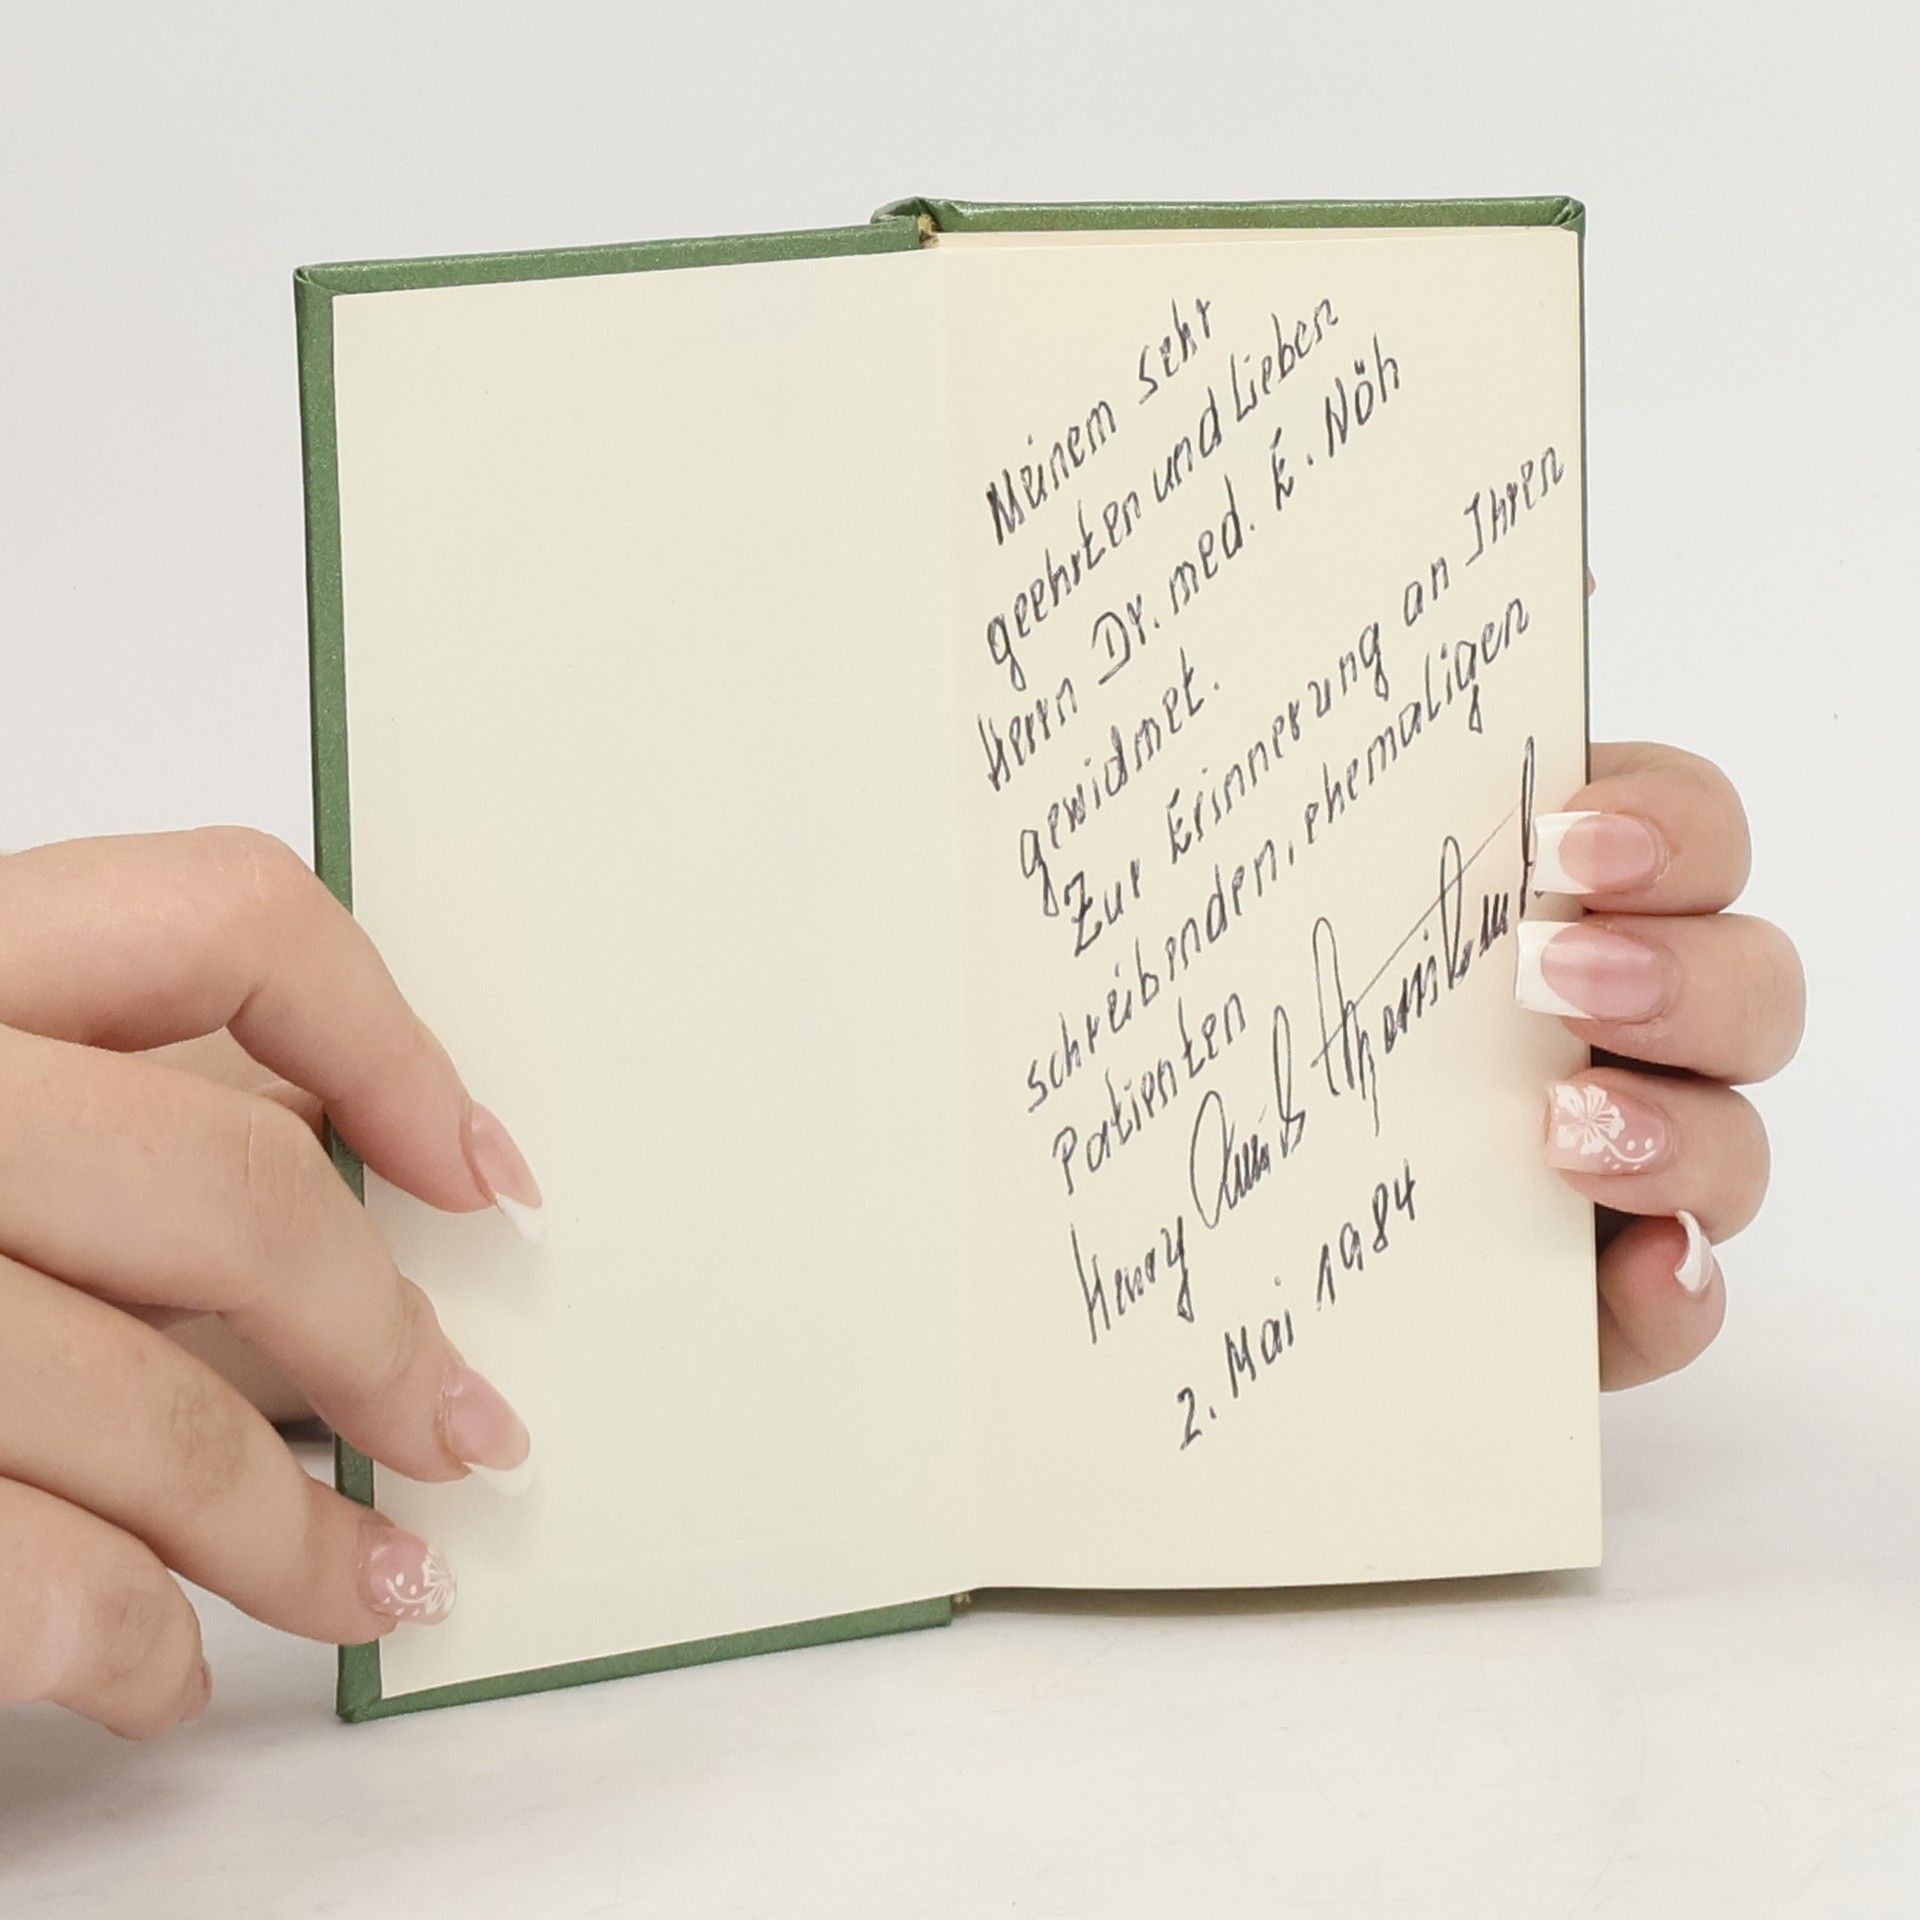 Meinem sehr
geehrten und Lieben
Herrn Dr. med. E. Nöh
gewidmet.
Zur Erinnerung an Ihren
schreibenden, ehemaligen
Patienten
Henry
2. Mai 1984